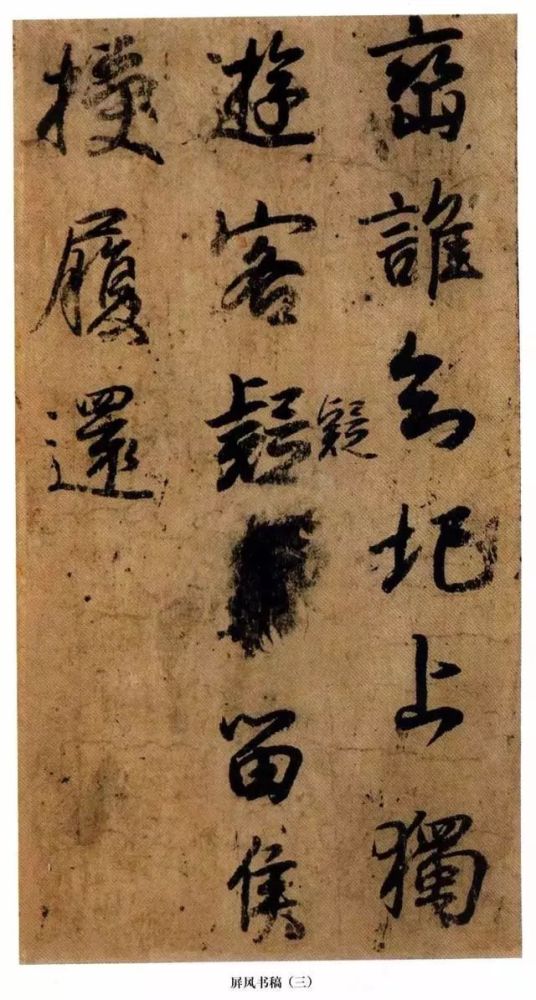 峦誰知圯上獨
遊客疑留侯
疑
授履還
屏风书稿（三）